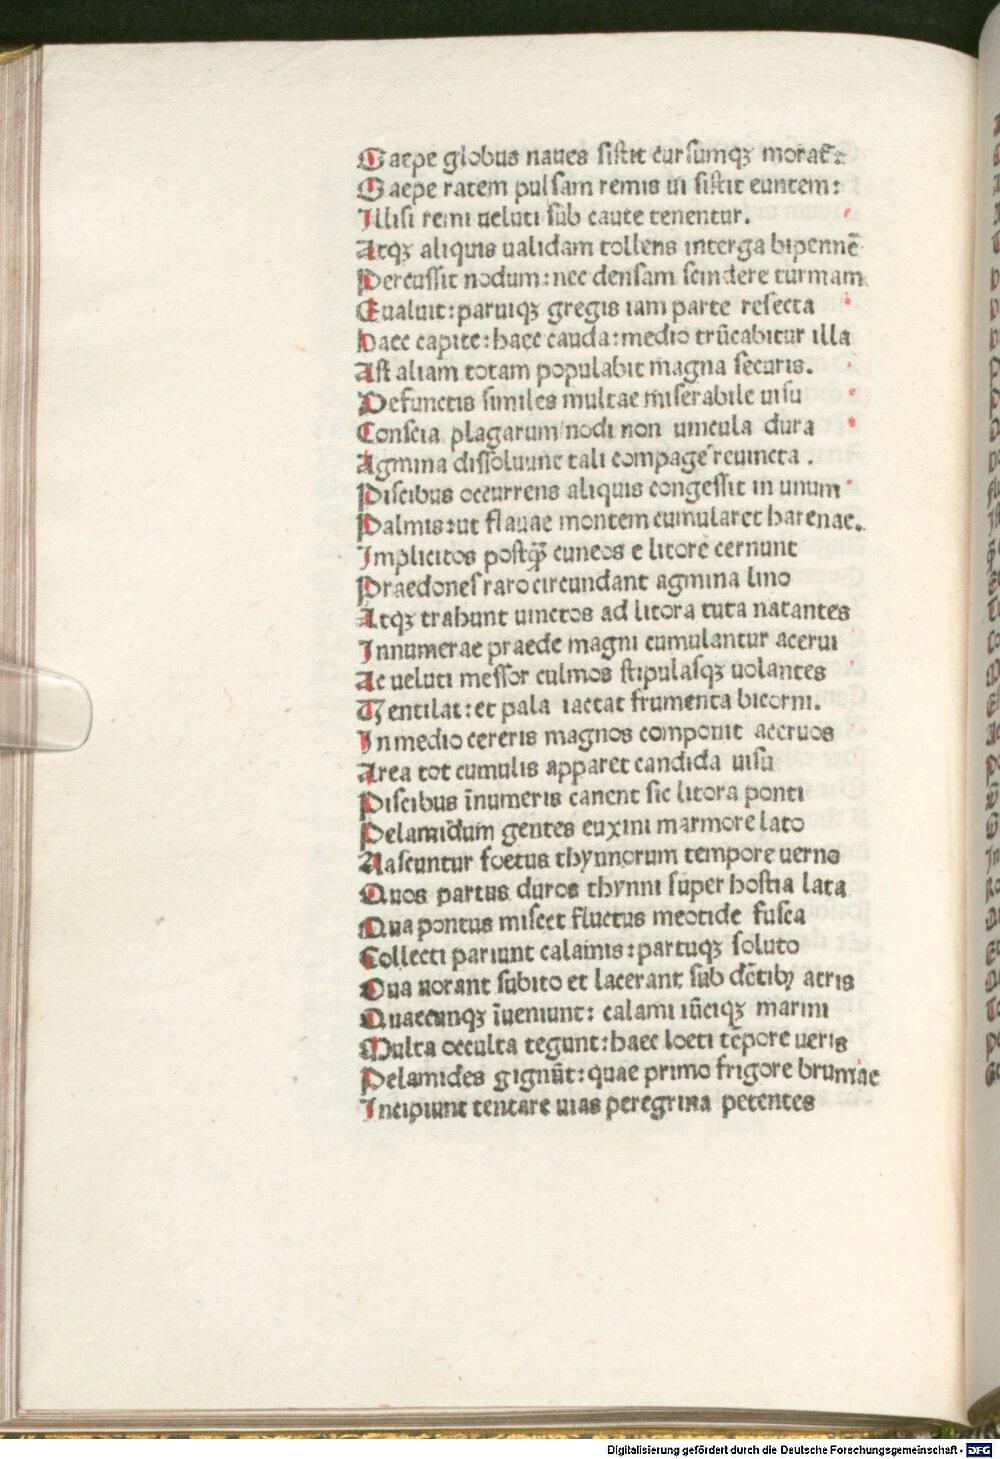 Saepe globus naues sistit cursumqꝫ morat̃:
Saepe ratem pulsam remis ui sistit euntem:
Illisi remi ueluti sub caute tenentur.
Atqꝫ aliquis ualidam tollens interga bipennē
Percussit nodum: nec densam scindere turmam
Eualuit: paruiqꝫ gregis iam parte resecta
Haec capite: haec cauda: medio trūcabitur illa
Ast aliam totam populabit magna securis.
Defunctis similes multae miserabile uisu
Conscia plagarum nodi non uincula dura
Agmina dissoluunt tali compage reuincta.
Piscibus occurrens aliquis congessit in unum
Palmis: ut flauae montem cumularet harenae.
Implicitos postqꝫ̃ cuneos e litore cernunt
Praedones raro circundant agmina lino
Atqꝫ trahunt uinctos ad litora tuta natantes
Innumerae praede magni cumulantur acerui
Ac ueluti messor culmos stipulasqꝫ uolantes
Ventilat: et pala iactat frumenta bicorni.
In medio cereris magnos componit aceruos
Area tot cumulis apparet candida uisu
Piscibus īnumeris canent sic litora ponti
Pelamidum gentes euxini marmore lato
Nascuntur foetus thynnorum tempore uerno
Quos partus duros thynni super hostia lata
Qua pontus miscet fluctus meotide fusca
Collecti pariunt calamis: partuqꝫ soluto
Oua uorant subito et lacerant sub dētibꝫ atris
Quaecunqꝫ īueniunt: calami iūciqꝫ marini
Multa occulta tegunt: haec loeti tēpore ueris
Pelamides gignūt: quae primo frigore brumae
Incipiunt tentare uias peregrina petentes
Digitalisierung gefördert durch die Deutsche Forschungsgemeinschaft - DFG